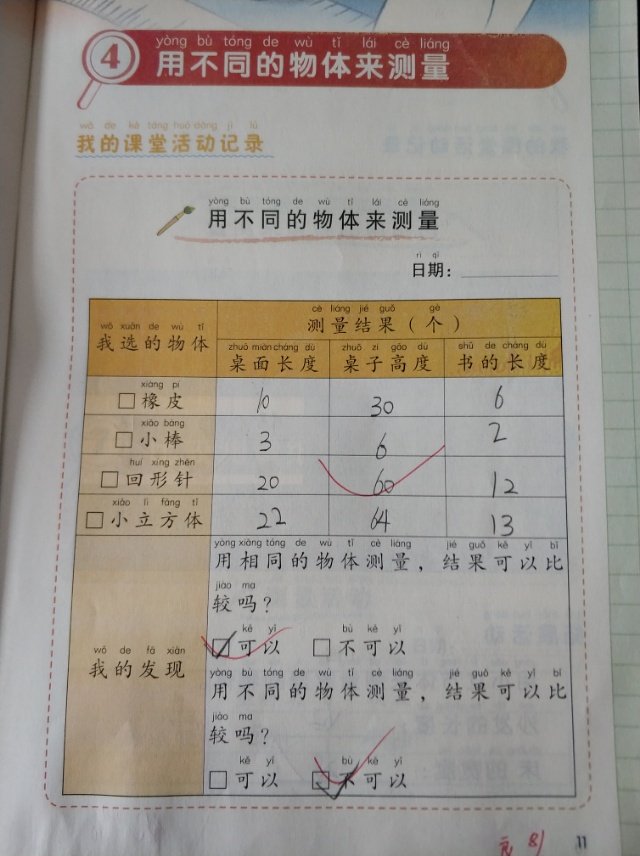 yòng bù tóng de wù tǐ lái cè liáng
4 用不同的物体来测量
wǒ de kè táng huó dòng jì lù
我的课堂活动记录
yòng bù tóng de wù tǐ lái cè liáng
用不同的物体来测量
rì qī
日期：
cè liáng jié guǒ gè
测量结果（个）
wǒ xuǎn de wù tǐ
我选的物体
zhuō miàn cháng dù zhuō zi gāo dù shū de cháng dù
桌面长度 桌子高度 书的长度
xiàng pí
□橡皮 10 30 6
xiǎo bàng
□小棒 3 6 2
huí xíng zhēn
□回形针 20 60 12
xiǎo lì fāng tǐ
□小立方体 22 64 13
yòng xiāng tóng de wù tǐ cè liáng jié guǒ kě yǐ bǐ
用相同的物体测量，结果可以比
jiào ma
较吗？
kě yǐ bù kě yǐ
☑可以 □不可以
wǒ de fā xiàn
我的发现
yòng bù tóng de wù tǐ cè liáng jié guǒ kě yǐ bǐ
用不同的物体测量，结果可以比
jiào ma
较吗？
kě yǐ bù kě yǐ
□可以 ☑不可以
11